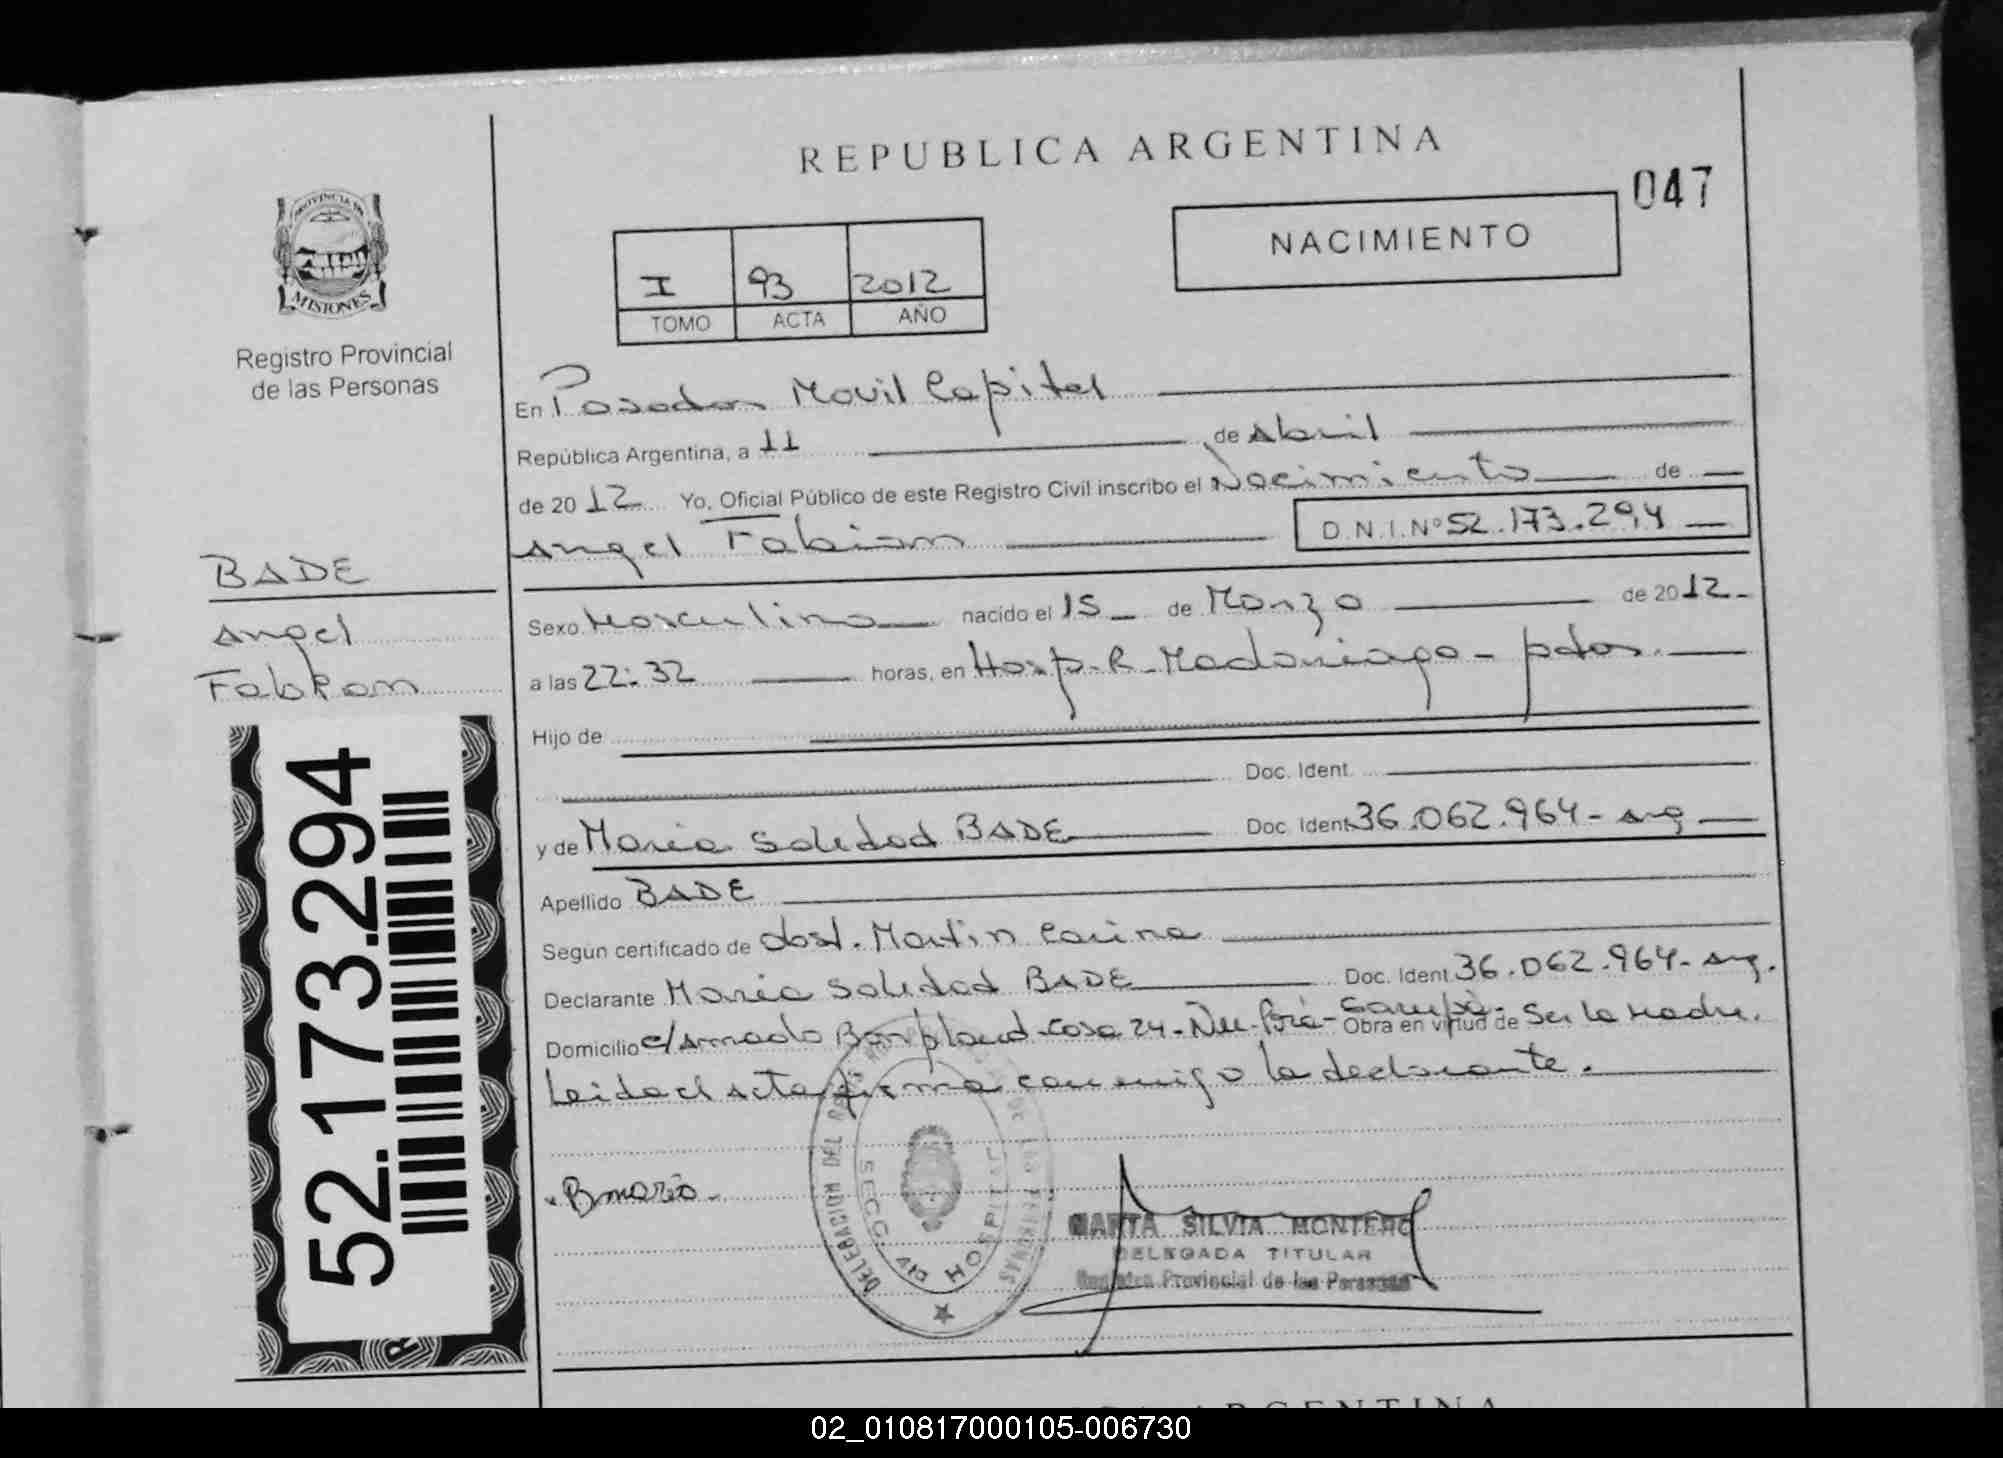 REPUBLICA ARGENTINA
047
NACIMIENTO
I 93 2012
TOMO ACTA AÑO
PROVINCIA DE
MISIONES
Registro Provincial
de las Personas
BADE
Angel
Fabian
52.173.294
En Posadas Movil Capital
República Argentina, a 11 de Abril
de 2012 Yo, Oficial Público de este Registro Civil inscribo el Nacimiento de
Angel Fabian D.N.I.Nº 52.173.294
Sexo Masculino nacido el 15 de Marzo de 2012
a las 22:32 horas, en Hosp. R. Madariaga - pdas.
Hijo de
Doc. Ident.
y de Maria Soledad BADE Doc. Ident. 36.062.964 - arg
Apellido BADE
Según certificado de obst. Martin Carina
Declarante Maria Soledad BADE Doc. Ident. 36.062.964 - arg.
Domicilio c/ Amado Bonpland - Casa 24 - Obra en virtud de Ser la Madre.
Leida el Acta firma conmigo la declarante.
B maria
DELEGACION DEL
DE LAS PERSONAS
SECC. 4ta HOSPITAL
MARTA SILVIA MONTERO
DELEGADA TITULAR
Registro Provincial de las Personas
ARGENTINA
02_010817000105-006730